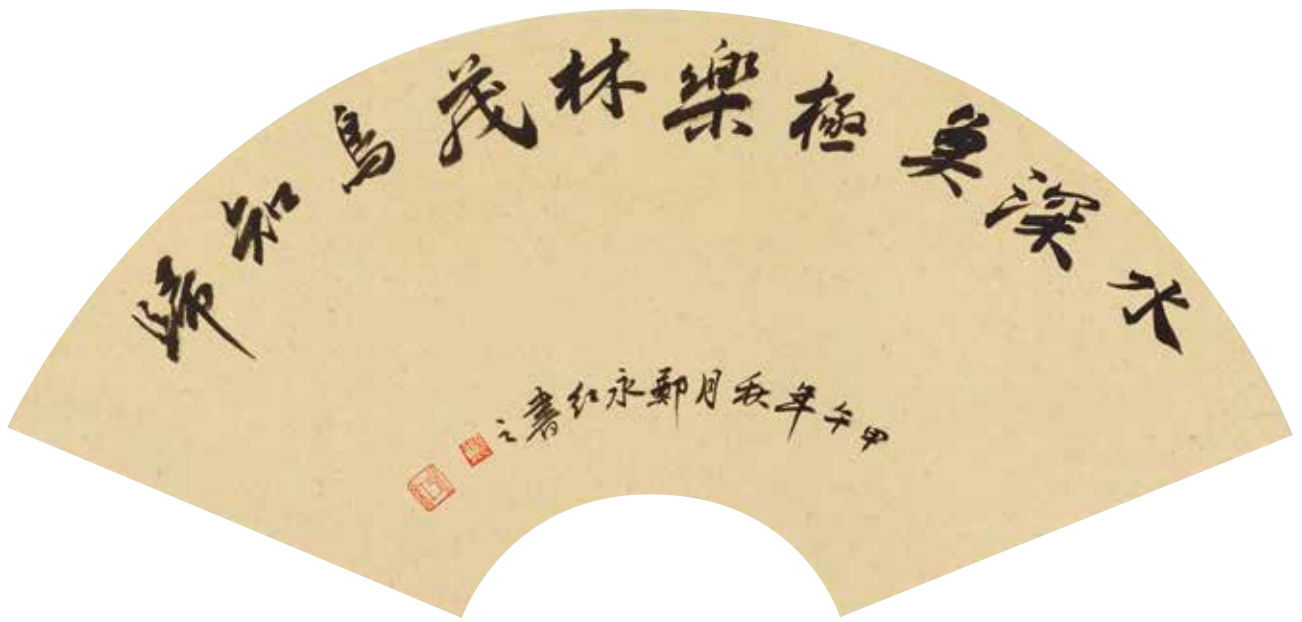 水深魚極樂林茂鳥知歸
甲午年秋月鄭永紅書之